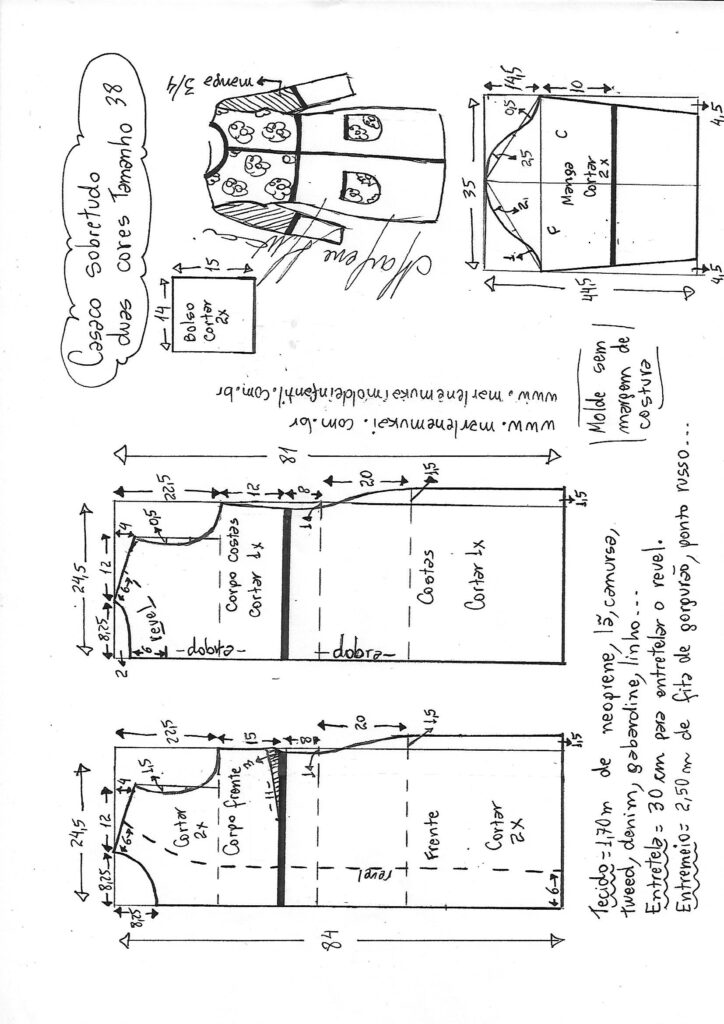 Casaco Sobretudo
duas cores Tamanho 38
manga 3/4
14
15
Bolso
Cortar
2x
Marlene Mukai
www.marlenemukaimoldeinfantil.com.br
www.marlenemukai.com.br
35
14,5
0,5
2,5
2
1
10
F
C
Manga
Cortar
2x
44,5
4,5
4,5
Molde sem
margem de
costura
81
22,5
12
8
20
1,5
1,5
24,5
8,25
12
4
6
0,5
2
6
revel
Corpo costas
Cortar 1x
-dobra-
-dobra-
1
Costas
Cortar 1x
84
22,5
15
8
20
1,5
1,5
24,5
8,25
12
4
6
1,5
8,25
Cortar
2x
Corpo frente
-11-
3
1
revel
Frente
Cortar
2X
6
Tecido=1,70m de neoprene, lã, camurça,
tweed, denim, gabardine, linho...
Entretela= 30 cm para entretelar o revel.
Entremeio= 2,50 m de fita de gorgurão, ponto russo...